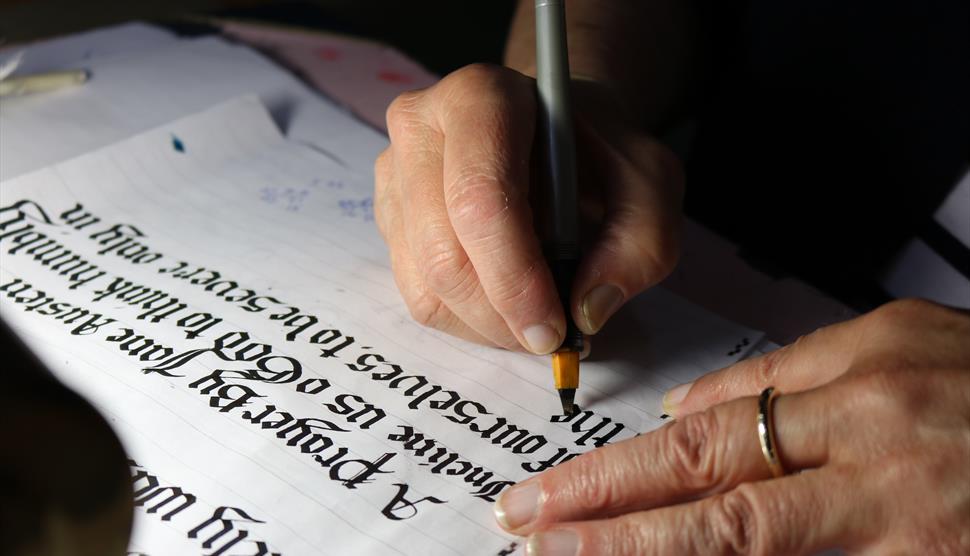 A Prayer By Jane Austen
Incline us o God to think humbly
of ourselves, to be severe only in
the